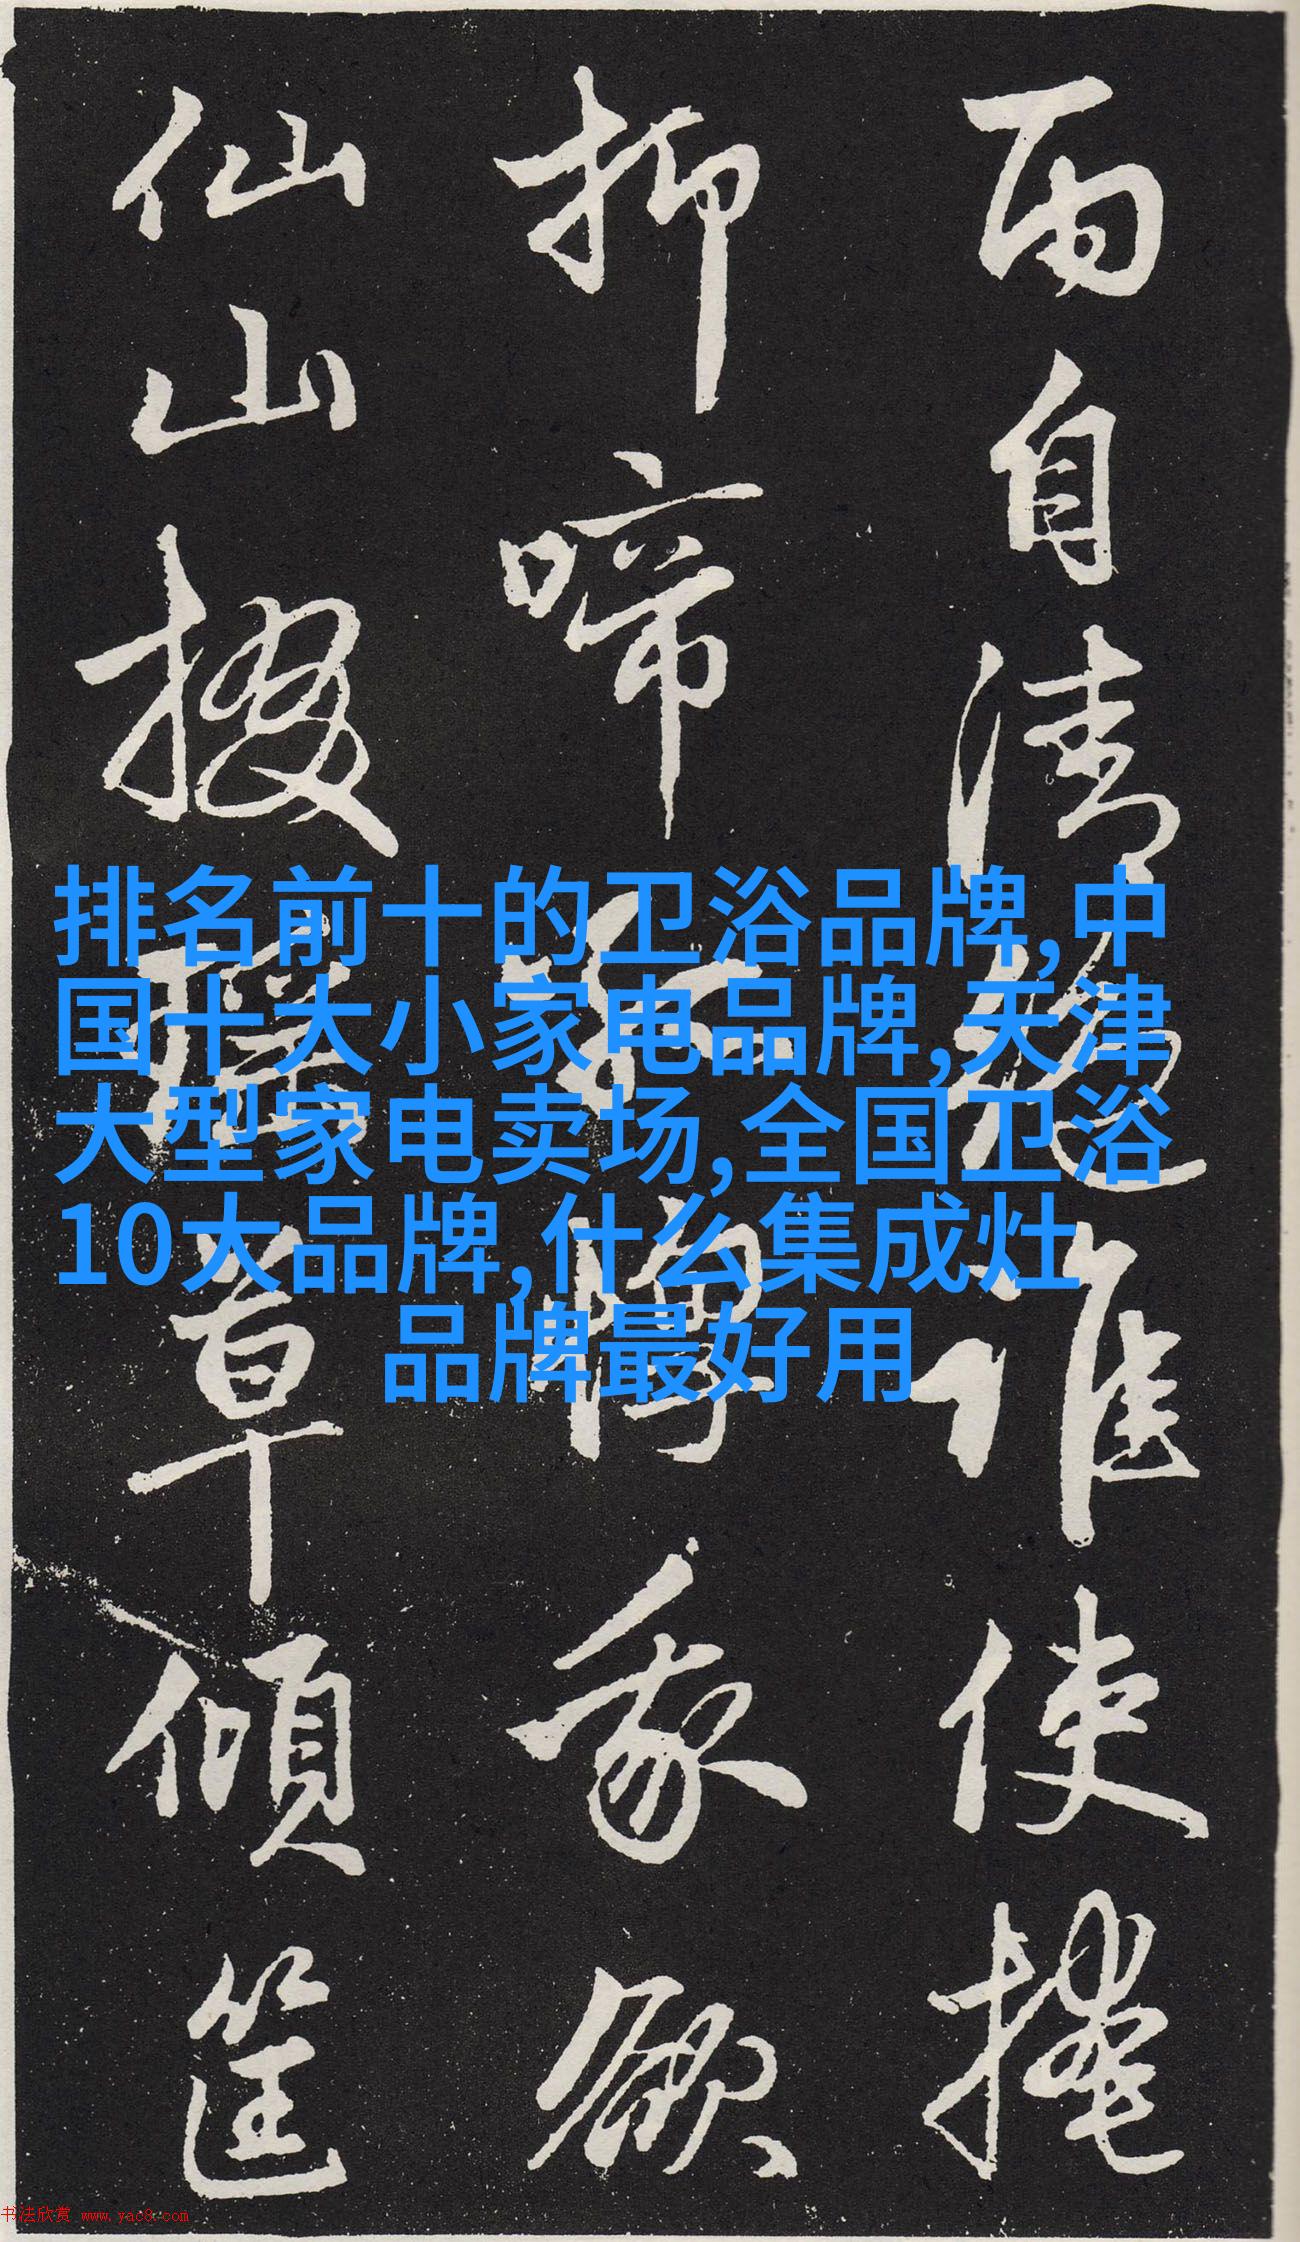 而自清越誰使掩
抑啼孤惸我欲
仙山掇瑤草傾筐
排名前十的卫浴品牌,中
国十大小家电品牌,天津
大型家电卖场,全国卫浴
10大品牌,什么集成灶
品牌最好用
书法欣赏 www.yac8.com